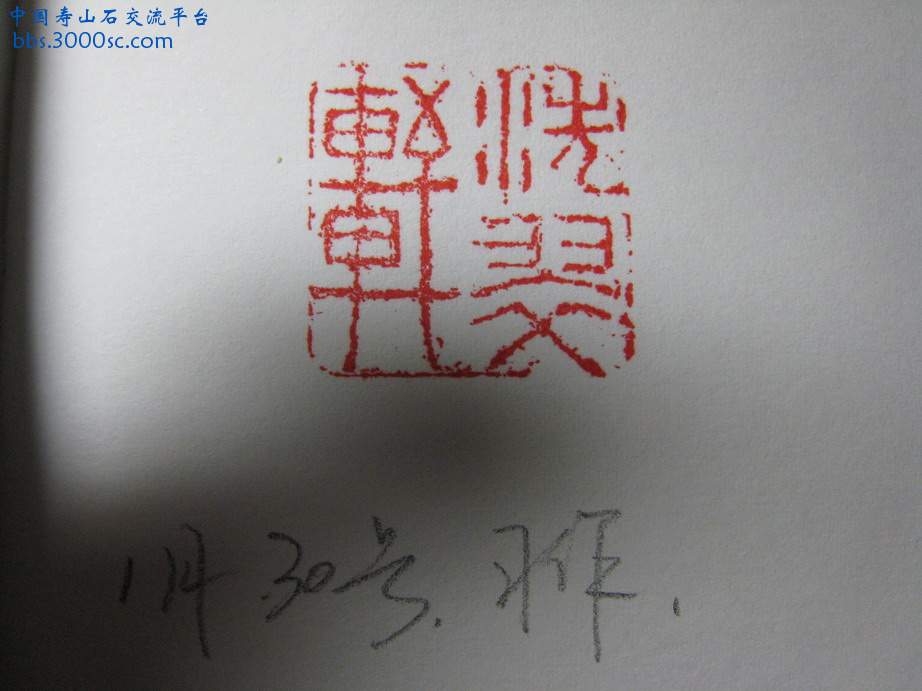 中国寿山石交流平台
bbs.3000sc.com
軒
1月30号.习作.